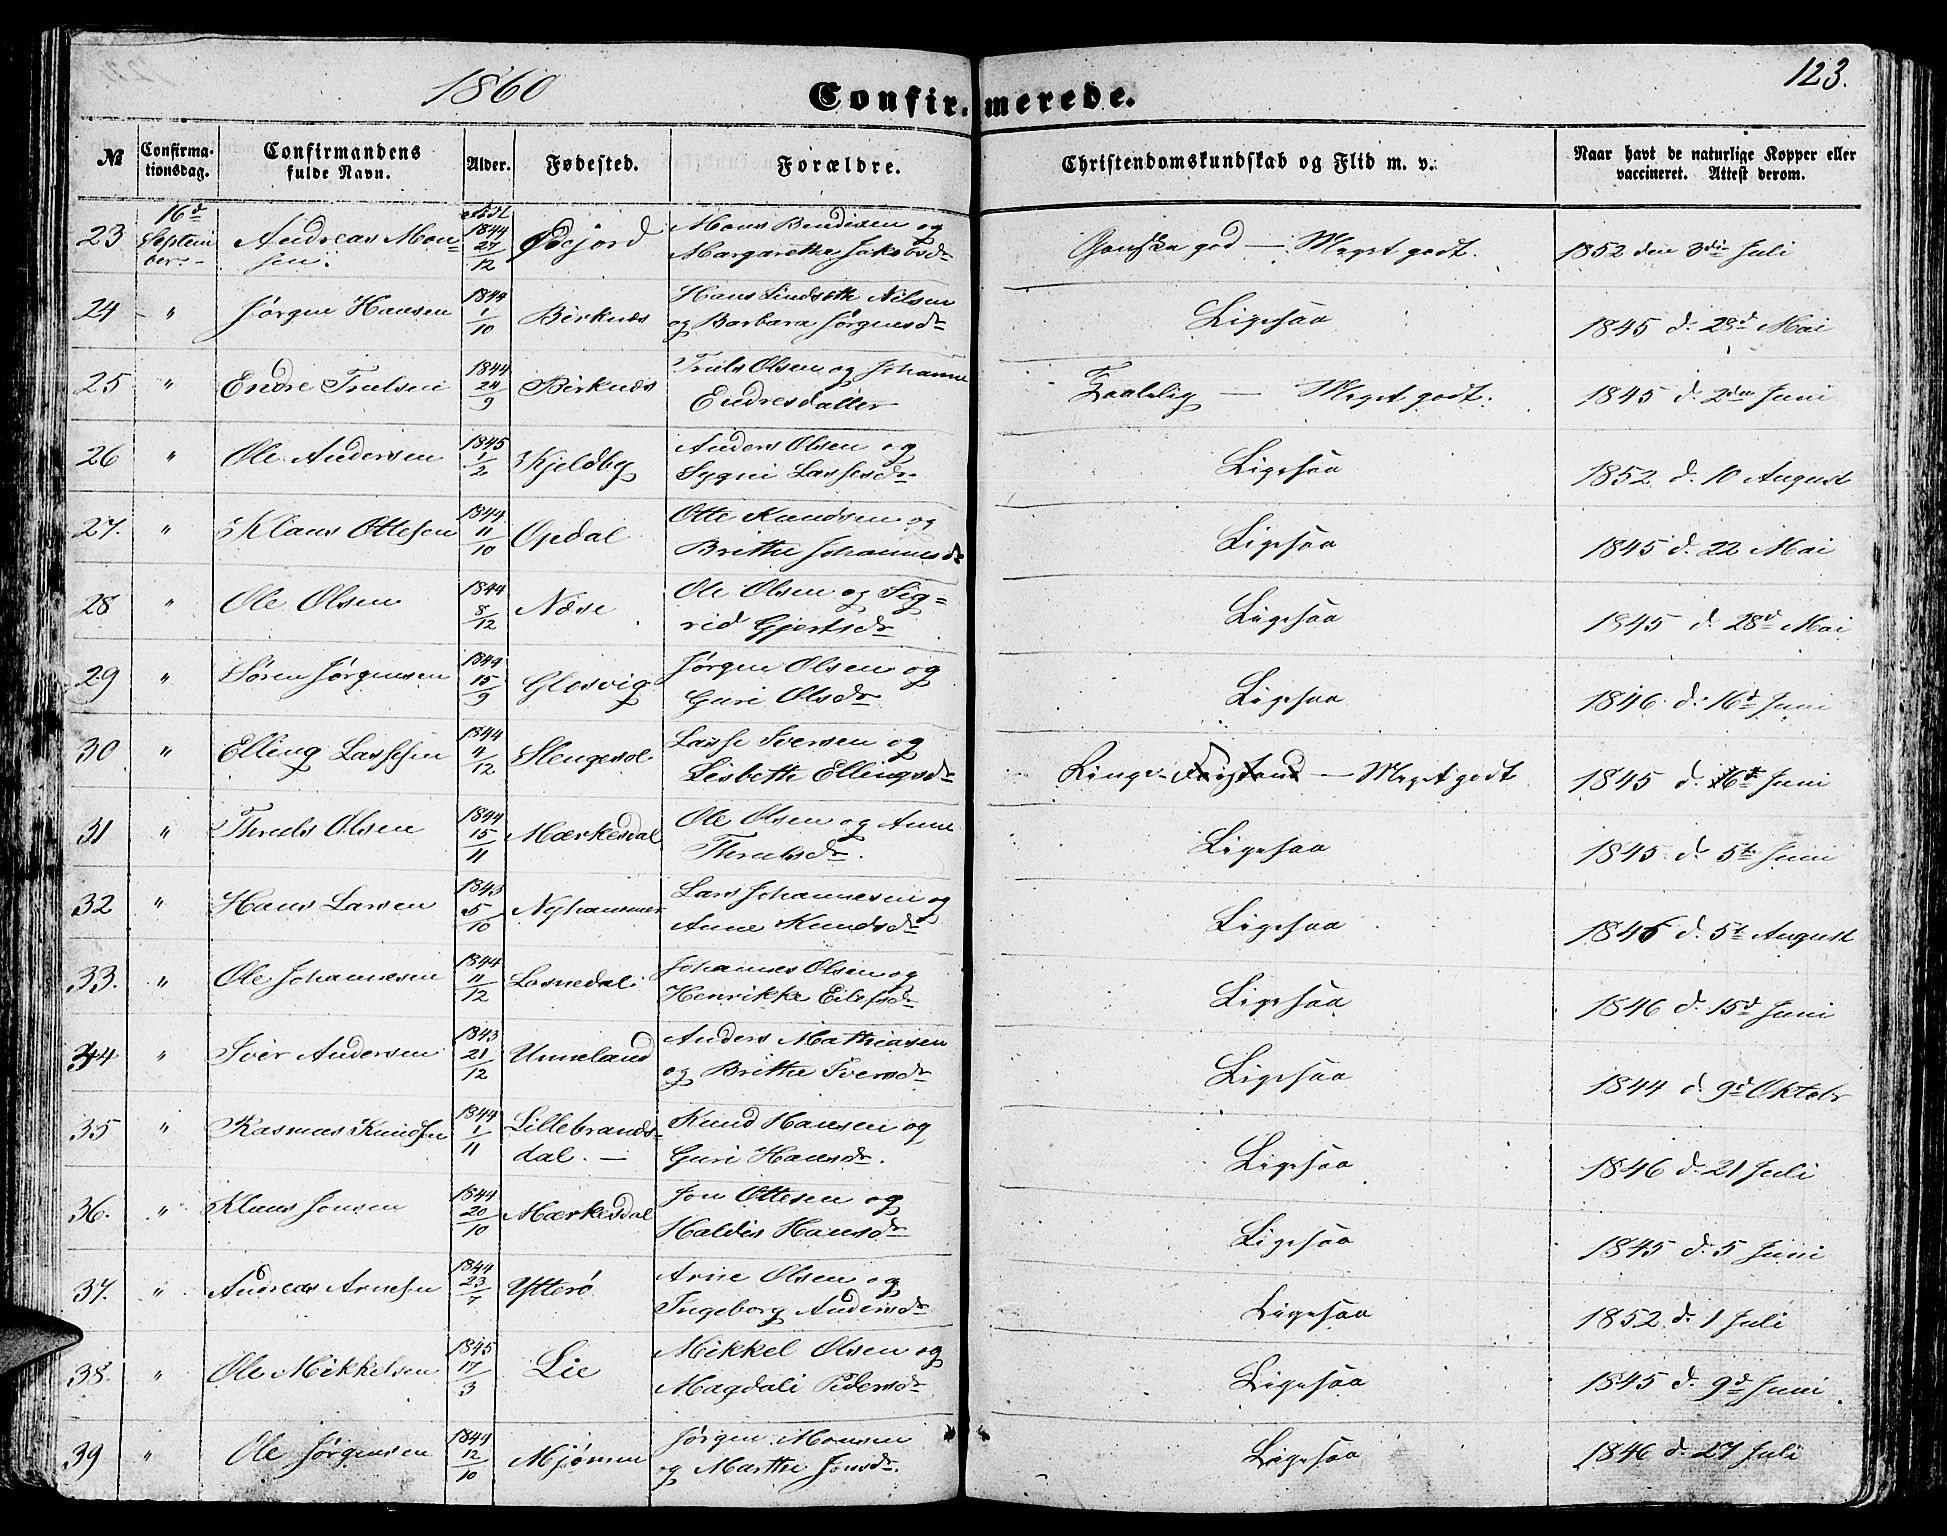 1860
Confirmerede.
123.
№ Confirmationsdag. Confirmandens fulde Navn. Alder. Fødested. Forældre. Christendomskundskab og Flid m. v. Naar havt de naturlige Kopper eller vaccineret. Attest derom.
23 16d Septem= Andreas Mon= 1844 Øvejord Mons Bendixen og Ganske god — Meget godt. 1852 den 3die Juli
ber.- sen. 27/12 Margarethe Jakobsdr
24 " Jørgen Hansen 1844 1/10 Birknæs Hans Lindseth Nilsen Ligesaa 1845 d. 28d Mai
og Barbara Jørgensdr
25 " Endre Trulsen 1844 24/9 Birknæs Truls Olsen og Johanne Taalelig — Meget godt. 1845 d. 2den Juni
Endresdatter
26 " Ole Andersen 1845 1/2 Skjeldby Anders Olsen og Ligesaa 1852 d. 10 August
Sygni Lassesdr
27. " Klaus Ottesen 1844 11/10 Opdal Otte Knudsen og Ligesaa 1845 d. 22 Mai
Brithe Johannesdr
28 " Ole Olsen 1844 8/12 Næse Ole Olsen og Sig= Ligesaa 1845 d. 28d Mai
rid Gjertsdr
29 " Søren Jørgensen 1844 15/9 Glosvig Jørgen Olsen og Ligesaa 1846 d. 16d Juni
Guri Olsdr
30 " Elling Lassesen 1844 4/12 Slengesol Lasse Iversen og Ringe — Meget godt 1845 d. 6t Juni
Lisbethe Ellingsdr
31 " Thruls Olsen 1844 15/11 Mærkesdal Ole Olsen og Anne Ligesaa 1845 d. 5te Juni
Thrulsdr.
32 " Hans Larsen 1843 5/10 Nyhammer Lars Johannesen og Ligesaa 1846 d. 5te August
Anne Knudsdr
33. " Ole Johannesen 1844 11/12 Losnedal Johannes Olsen og Ligesaa 1846 d. 15d Juni
Henrikke Eilefsdr
34 " Iver Andersen 1843 21/12 Unneland Anders Mathiasen Ligesaa 1844 d. 9d Oktobr
og Brithe Iversdr
35 " Rasmus Knudsen 1844 1/11 Lillebrands- Knud Hansen og Ligesaa 1846 d. 21 Juli
dal. — Guri Hansdr.
36. " Klaus Jonsen 1844 20/10 Mærkesdal Jon Ottesen og Ligesaa 1845 d. 5 Juni
Haldis Hansdr
37. " Andreas Arnesen 1844 23/7 Ytterø Arne Olsen og Ligesaa 1852 d. 1 Juli
Ingeborg Andersdr
38. " Ole Mikkelsen 1845 17/3 Lie Mikkel Olsen og Ligesaa 1845 d. 9d Juni
Magdali Pedersdr
39 " Ole Jørgensen 1844 12/10 Mjømen Jørgen Monsen Ligesaa 1846 d. 27 Juli
og Marthe Jonsdr.